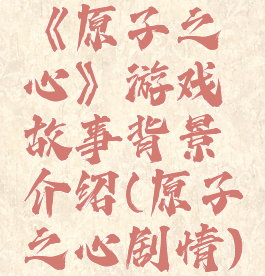 《原子之
心》游戏
故事背景
介绍(原子
之心剧情)